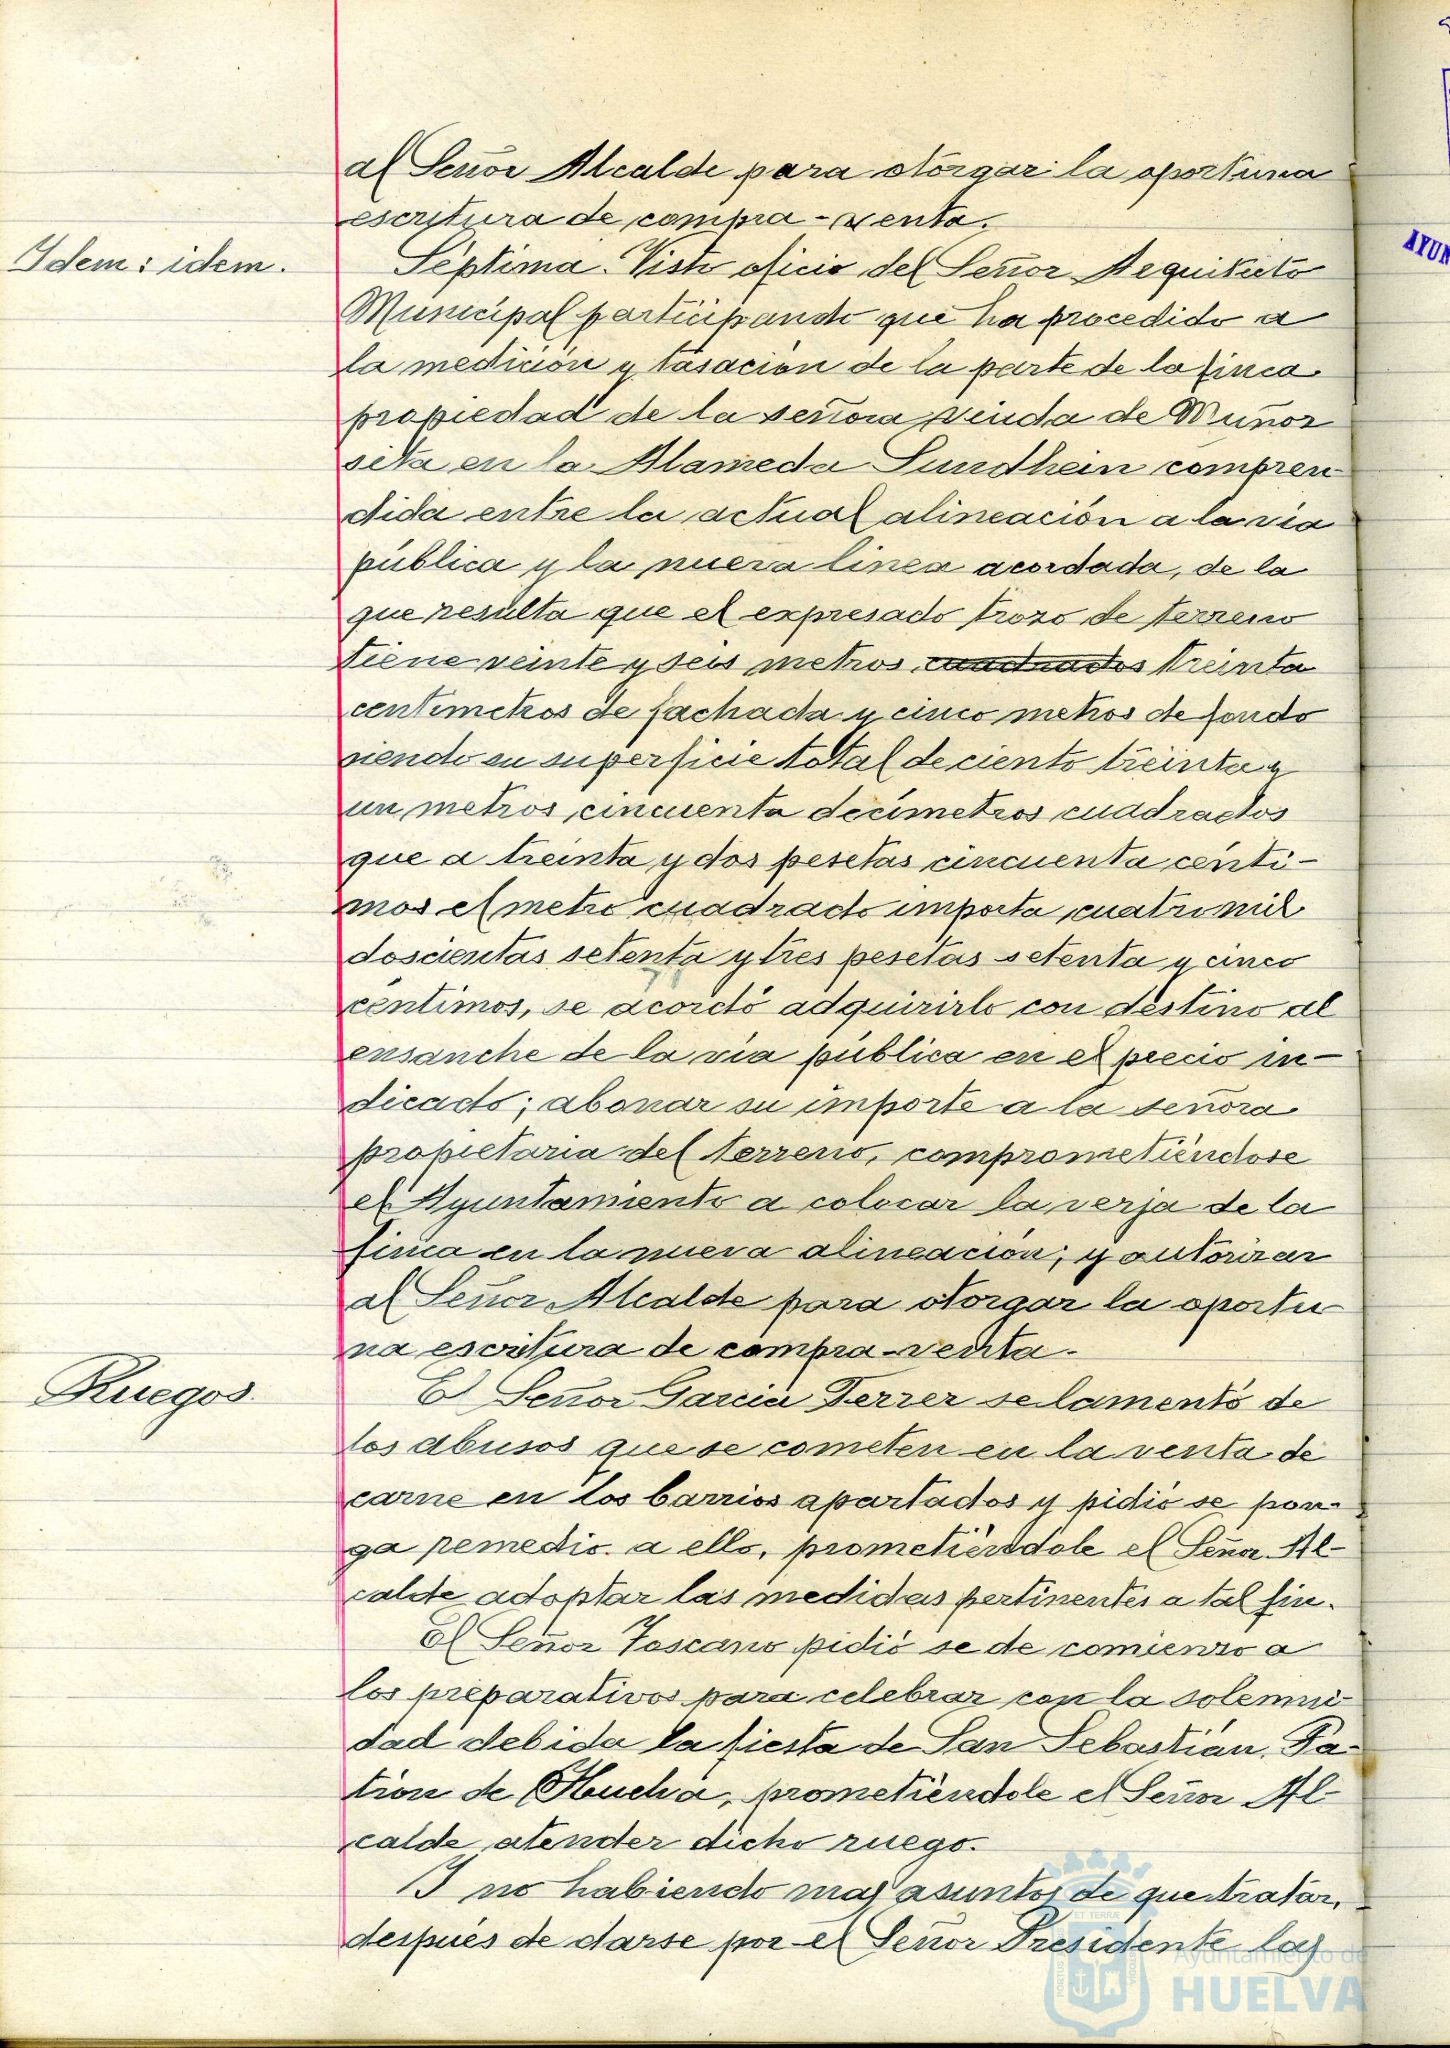 al Señor Alcalde para otorgar la oportuna
escritura de compra-venta.
Idem: idem.
Séptima. Visto oficio del Señor Arquitecto
Municipal participando que ha procedido a
la medición y tasación de la parte de la finca
propiedad de la señora viuda de Muñoz
sita en la Alameda Sundhein compren-
dida entre la actual alineación a la vía
pública y la nueva linea acordada, de la
que resulta que el expresado trozo de terreno
tiene veinte y seis metros cuadrados treinta
centimetros de fachada y cinco metros de fondo
siendo su superficie total de ciento treinta y
un metros, cincuenta decímetros cuadrados
que a treinta y dos pesetas cincuenta cénti-
mos el metro cuadrado importa cuatro mil
doscientas setenta y tres pesetas setenta y cinco
céntimos, se acordó adquirirlo con destino al
ensanche de la vía pública en el precio in-
dicado; abonar su importe a la señora
propietaria del terreno, comprometiéndose
el Ayuntamiento a colocar la verja de la
finca en la nueva alineación; y autorizar
al Señor Alcalde para otorgar la oportu
na escritura de compra-venta.
Ruegos.
El Señor García Ferrer se lamentó de
los abusos que se cometen en la venta de
carne en los barrios apartados y pidió se pon-
ga remedio a ello, prometiéndole el Señor Al-
calde adoptar las medidas pertinentes a tal fin.
El Señor Toscano pidió se de comienzo a
los preparativos para celebrar con la solemni-
dad debida la fiesta de San Sebastián, Pa-
tron de Huelva, prometiéndole el Señor Al-
calde atender dicho ruego.
Y no habiendo mas asuntos de que tratar,
después de darse por el Señor Presidente las
Ayuntamiento de
HUELVA
AYUN